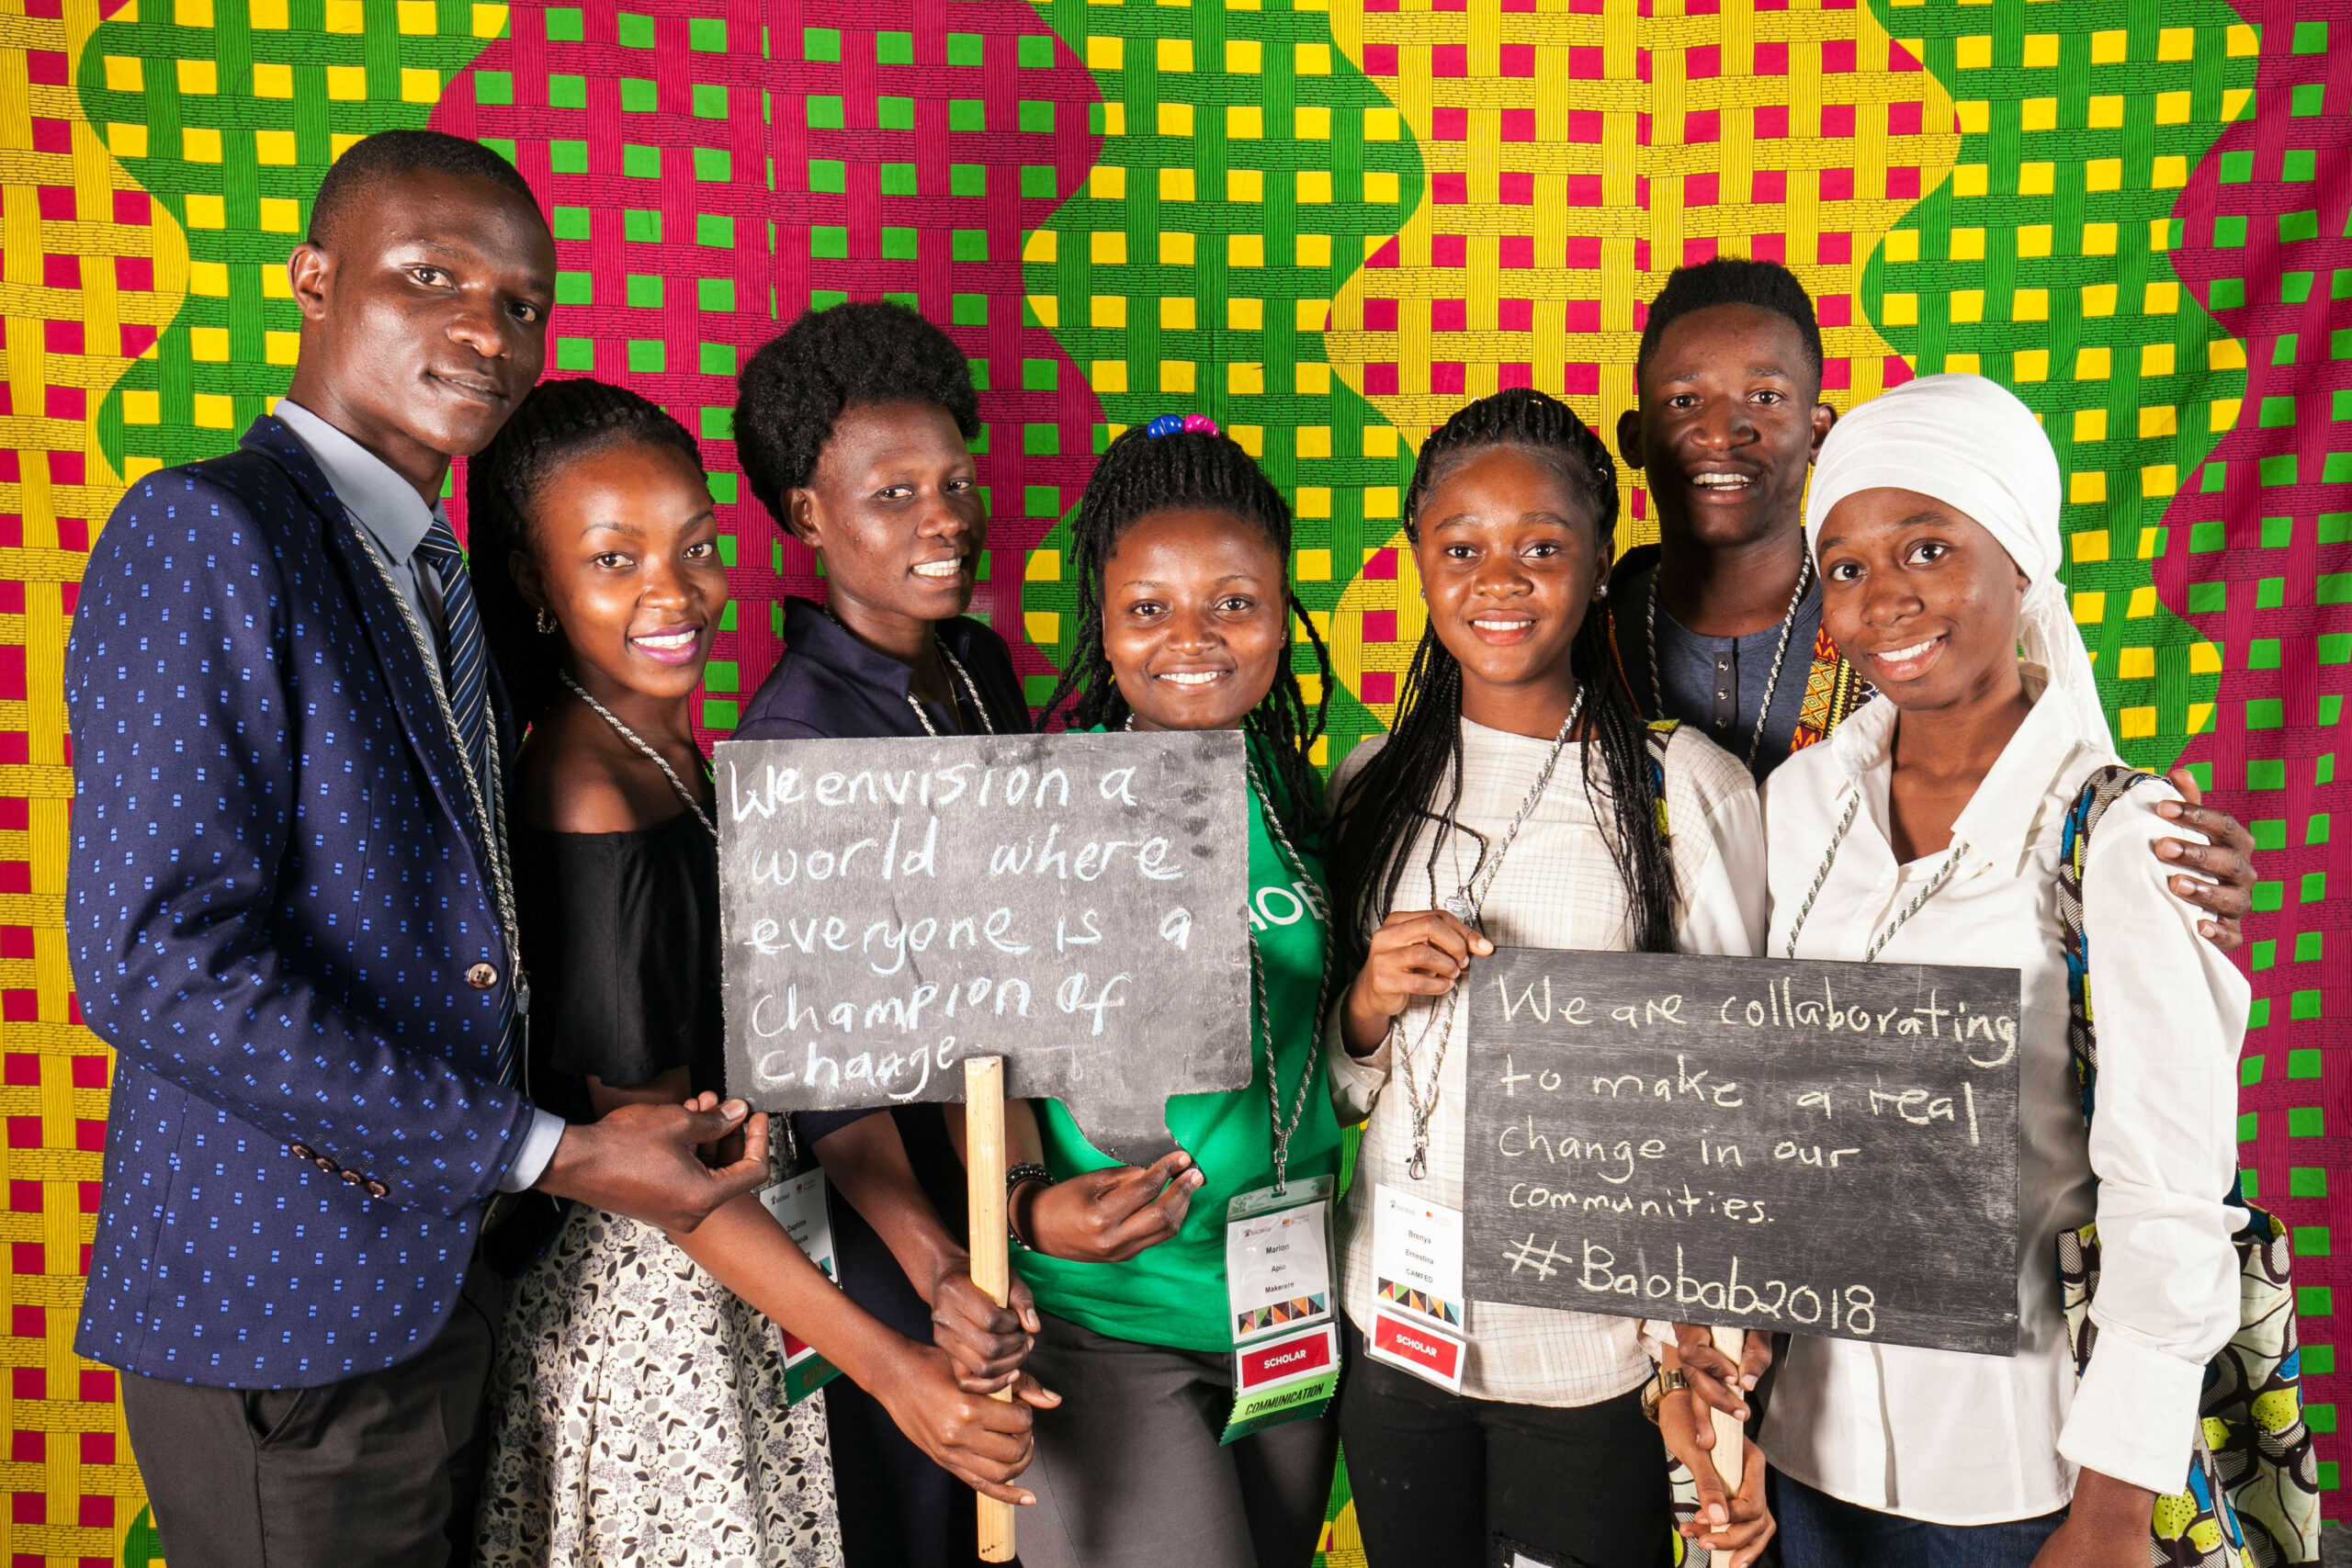 We envision a
world where
everyone is a
Champion of
Change
We are collaborating
to make a real
change in our
communities.
#Baobab2018
AOB
Daphine
Marion
Apio
Makerere
SCHOLAR
COMMUNICATION
Brenya
Ernestina
CAMFED
SCHOLAR